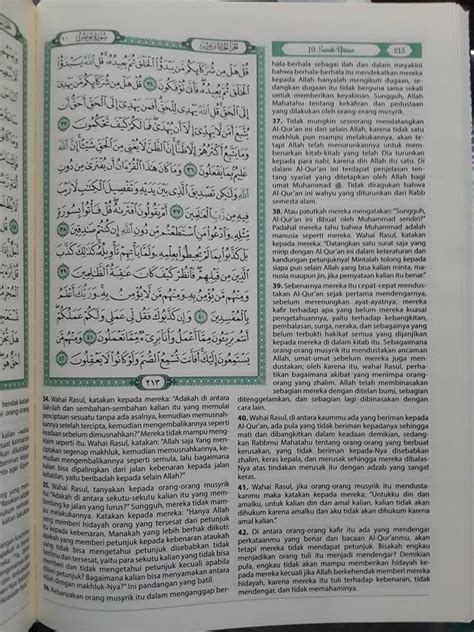 سورة يونس
الجزء الحادي عشر
قُلْ هَلْ مِن شُرَكَآئِكُم مَّن يَبْدَؤُا الْخَلْقَ ثُمَّ يُعِيدُهُۥ قُلِ اللَّهُ يَبْدَؤُا
الْخَلْقَ ثُمَّ يُعِيدُهُۥ فَأَنَّىٰ تُؤْفَكُونَ ٣٤ قُلْ هَلْ مِن شُرَكَآئِكُم مَّن يَهْدِىٓ
إِلَى الْحَقِّ قُلِ اللَّهُ يَهْدِى لِلْحَقِّ أَفَمَن يَهْدِىٓ إِلَى الْحَقِّ أَحَقُّ أَن يُتَّبَعَ
أَمَّن لَّا يَهِدِّىٓ إِلَّآ أَن يُهْدَىٰ فَمَا لَكُمْ كَيْفَ تَحْكُمُونَ ٣٥
وَمَا يَتَّبِعُ أَكْثَرُهُمْ إِلَّا ظَنًّا إِنَّ الظَّنَّ لَا يُغْنِى مِنَ الْحَقِّ شَيْئًا إِنَّ
اللَّهَ عَلِيمٌ بِمَا يَفْعَلُونَ ٣٦ وَمَا كَانَ هَٰذَا الْقُرْءَانُ أَن يُفْتَرَىٰ مِن دُونِ
اللَّهِ وَلَٰكِن تَصْدِيقَ الَّذِى بَيْنَ يَدَيْهِ وَتَفْصِيلَ الْكِتَٰبِ لَا رَيْبَ
فِيهِ مِن رَّبِّ الْعَٰلَمِينَ ٣٧ أَمْ يَقُولُونَ افْتَرَىٰهُ قُلْ فَأْتُوا بِسُورَةٍ
مِّثْلِهِۦ وَادْعُوا مَنِ اسْتَطَعْتُم مِّن دُونِ اللَّهِ إِن كُنتُمْ صَٰدِقِينَ ٣٨
بَلْ كَذَّبُوا بِمَا لَمْ يُحِيطُوا بِعِلْمِهِۦ وَلَمَّا يَأْتِهِمْ تَأْوِيلُهُۥ كَذَٰلِكَ كَذَّبَ
الَّذِينَ مِن قَبْلِهِمْ فَانظُرْ كَيْفَ كَانَ عَٰقِبَةُ الظَّٰلِمِينَ ٣٩
وَمِنْهُم مَّن يُؤْمِنُ بِهِۦ وَمِنْهُم مَّن لَّا يُؤْمِنُ بِهِۦ وَرَبُّكَ أَعْلَمُ
بِالْمُفْسِدِينَ ٤٠ وَإِن كَذَّبُوكَ فَقُل لِّى عَمَلِى وَلَكُمْ عَمَلُكُمْ
أَنتُم بَرِيٓـُٔونَ مِمَّآ أَعْمَلُ وَأَنَا۠ بَرِىٓءٌ مِّمَّا تَعْمَلُونَ ٤١ وَمِنْهُم مَّن
يَسْتَمِعُونَ إِلَيْكَ أَفَأَنتَ تُسْمِعُ الصُّمَّ وَلَوْ كَانُوا لَا يَعْقِلُونَ ٤٢
٢١٣
34. Wahai Rasul, katakan kepada mereka: "Adakah di antara
ilah-ilah dan sembahan-sembahan kalian itu yang memulai
penciptaan sesuatu tanpa ada asalnya, kemudian memusnah-
kannya setelah tercipta, kemudian mengembalikannya seperti
keadaan sebelum dimusnahkan?" Mereka tidak mampu menyatakan
itu. Katakan kepada mereka: "Allah saja Yang men-
ciptakan segenap makhluk, kemudian memusnahkannya, ke-
mudian mengembalikannya seperti semula, maka bagaimana kalian
bisa dipalingkan dari jalan kebenaran kepada jalan
kebatilan, yaitu beribadah kepada selain Allah?"
35. Wahai Rasul, tanyakan kepada orang-orang musyrik itu:
"Adakah di antara sekutu-sekutu kalian itu yang mem-
bimbing ke jalan yang lurus?" Sungguh, mereka tidak mam-
pu melakukannya. Katakan kepada mereka: "Hanya Allah
yang memberi hidayah orang yang tersesat dari petunjuk
kepada kebenaran. Manakah yang lebih berhak diikuti:
yang memberi petunjuk kepada kebenaran ataukah
yang tidak bisa memberi petunjuk disebabkan tidak
tahu dan tersesat, yaitu para sekutu kalian yang tidak bisa
memberi petunjuk dan tidak diberi petunjuk kecuali apabila
diberi petunjuk? Bagaimana kalian bisa menyamakan antara
Allah dengan makhluk-Nya?" Ini pandangan yang batil.
36. Kebanyakan orang musyrik itu dalam menganggap ber-
10. Surah Yunus
213
hala-berhala sebagai ilah dan dalam meyakini
bahwa berhala-berhala itu mendekatkan mereka
kepada Allah hanyalah mengikuti dugaan, se-
dangkan dugaan itu tidak berguna sama sekali
untuk memberikan keyakinan. Sungguh, Allah
Mahatahu tentang kekafiran dan pedustaan
yang dilakukan oleh orang-orang musyrik.
37. Tidak mungkin seseorang mendatangkan
Al-Qur'an ini dari selain Allah, karena tidak satu
makhluk pun mampu melakukannya, akan te-
tapi Allah telah menurunkannya untuk mem-
benarkan kitab-kitab yang telah Dia turunkan
kepada para nabi, karena din Allah itu satu. Di
dalam Al-Qur'an ini terdapat penjelasan ten-
tang syariat yang ditetapkan oleh Allah bagi
umat Muhammad ﷺ. Tidak diragukan bahwa
Al-Qur'an ini wahyu yang diturunkan dari Rabb
semesta alam.
38. Atau patutkah mereka mengatakan: "Sungguh,
Al-Qur'an ini dibuat oleh Muhammad sendiri?"
Padahal mereka tahu bahwa Muhammad adalah
manusia seperti mereka. Wahai Rasul, katakan
kepada mereka: "Datangkan satu surat saja yang
mirip dengan Al-Qur'an ini dalam keteraturan dan
kandungan petunjuknya! Mintalah tolong kepada
siapa pun selain Allah yang bisa kalian minta, ma-
nusia maupun jin, jika pernyataan kalian itu benar."
39. Sebenarnya mereka itu cepat-cepat mendus-
takan Al-Qur'an sejak pertama mendengarnya,
sebelum merenungkan ayat-ayatnya; mereka
kafir terhadap apa yang belum mereka kuasai
pengetahuannya, yaitu terhadap kebangkitan,
pembalasan, surga, neraka, dan sebagainya yang
belum terbukti hakikat dari semua yang diancamkan
di dalam kitab itu. Sebagaimana
orang-orang musyrik itu mendustakan ancaman
Allah, umat-umat sebelum mereka juga men-
dustakan; kini wahai Rasul, perhatikan
bagaimana akibat yang menimpa orang-
orang yang zhalim. Allah telah membinasakan
sebagian mereka dengan ditelan bumi, sebagian
ditenggelamkan, dan sebagian lagi dibinasakan dengan
cara lain.
40. Wahai Rasul, di antara kaummu ada yang beriman kepada
Al-Qur'an, ada pula yang tidak beriman kepadanya sehingga
mati dan dibangkitkan dalam keadaan demikian, sedang-
kan Rabbmu Mahatahu tentang orang-orang yang berbuat
kerusakan, yaitu yang tidak beriman kepada-Nya disebabkan
zhalim, keras kepala, dan merusak sehingga mereka dibalas-
Nya atas tindakan merusak itu dengan adzab yang sangat
keras.
41. Wahai Rasul, jika orang-orang musyrik itu mendusta-
kanmu maka katakan kepada mereka: "Untukku din dan
amalku, untuk kalian din dan amal kalian, kalian tidak akan
dihukum karena amalku dan aku tidak akan dihukum karena
amal kalian."
42. Di antara orang-orang kafir itu ada yang mendengar
perkataanmu yang benar dan bacaan Al-Qur'anmu, akan
tetapi mereka tidak mendapat petunjuk. Bisakah engkau
menjadikan orang tuli itu menjadi mendengar? Demikian
pula, engkau tidak akan mampu memberikan hidayah ke-
pada mereka kecuali jika Allah berkehendak memberi mereka
hidayah, karena mereka itu tuli terhadap kebenaran, tidak
mendengar, dan tidak memahaminya.